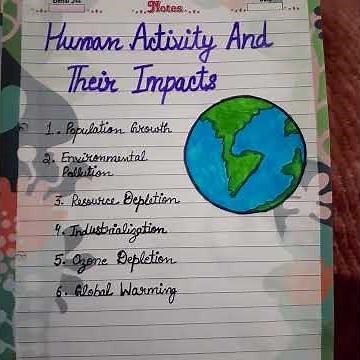 Notes
Human Activity And
Their Impacts
1. Population Growth
2. Environmental
Pollution
3. Resource Depletion
4. Industrialization
5. Ozone Depletion
6. Global Warming